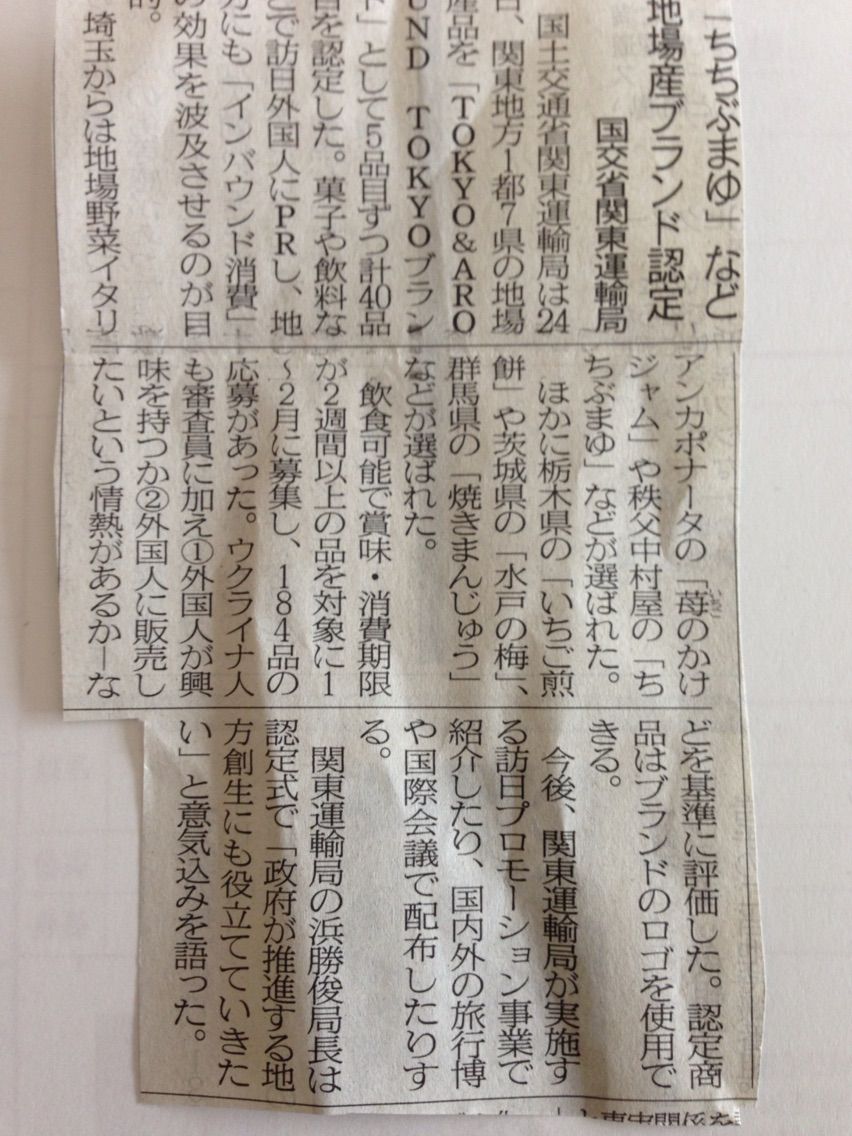 「ちちぶまゆ」など
地場産ブランド認定
国交省関東運輸局
国土交通省関東運輸局は24
日、関東地方1都7県の地場
産品を「TOKYO&ARO
UND TOKYOブラン
ド」として5品目ずつ計40品
目を認定した。菓子や飲料な
どで訪日外国人にPRし、地
方にも「インバウンド消費」
の効果を波及させるのが目
的。
埼玉からは地場野菜イタリ
アンカポナータの「苺のかけ
いちご
ジャム」や秩父中村屋の「ち
ちぶまゆ」などが選ばれた。
ほかに栃木県の「いちご煎
餅」や茨城県の「水戸の梅」、
群馬県の「焼きまんじゅう」
などが選ばれた。
飲食可能で賞味・消費期限
が2週間以上の品を対象に1
〜2月に募集し、184品の
応募があった。ウクライナ人
も審査員に加え①外国人が興
味を持つか②外国人に販売し
たいという情熱があるか―な
どを基準に評価した。認定商
品はブランドのロゴを使用で
きる。
今後、関東運輸局が実施す
る訪日プロモーション事業で
紹介したり、国内外の旅行博
や国際会議で配布したりす
る。
関東運輸局の浜勝俊局長は
認定式で「政府が推進する地
方創生にも役立てていきた
い」と意気込みを語った。